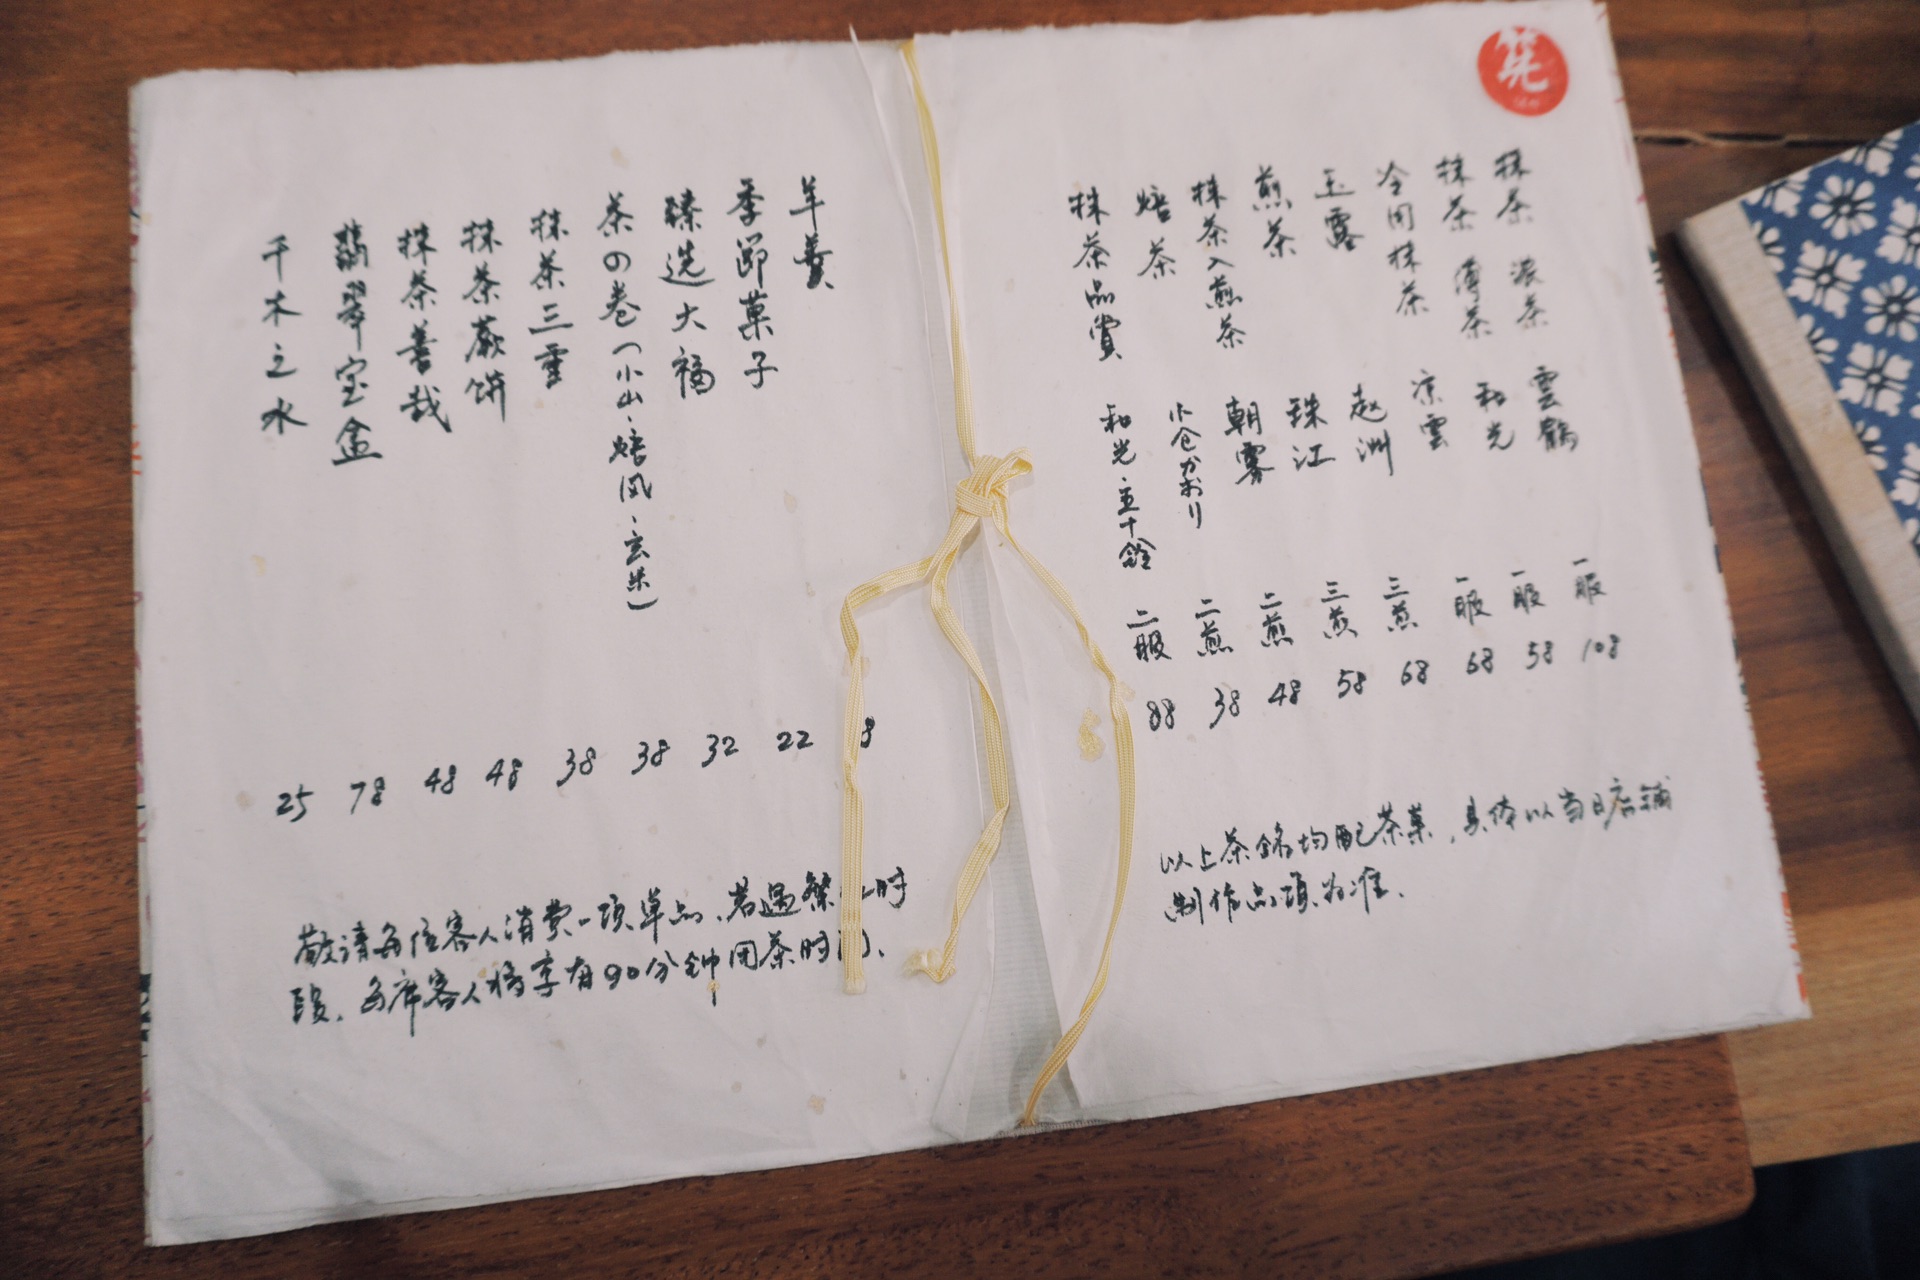 筅
抹茶 濃茶 雲鶴 一服 108
抹茶 薄茶 和光 一服 58
冷用抹茶 凉雲 一服 68
玉露 赵洲 三煎 68
煎茶 珠江 三煎 58
抹茶入煎茶 朝霧 二煎 48
焙茶 小仓かおり 二煎 38
抹茶品赏 和光、五十鈴 二服 88
以上茶銘均配茶菓，具体以当日店铺
制作品项为准.
羊羹 8
季節菓子 22
臻选大福 32
茶の卷(小山、焙风、玄米) 38
抹茶三重 38
抹茶蕨饼 48
抹茶善哉 48
翡翠宝盒 78
千木之水 25
敬请每位客人消费一项单品、若遇繁时
段、每席客人将享有90分钟用茶时间、